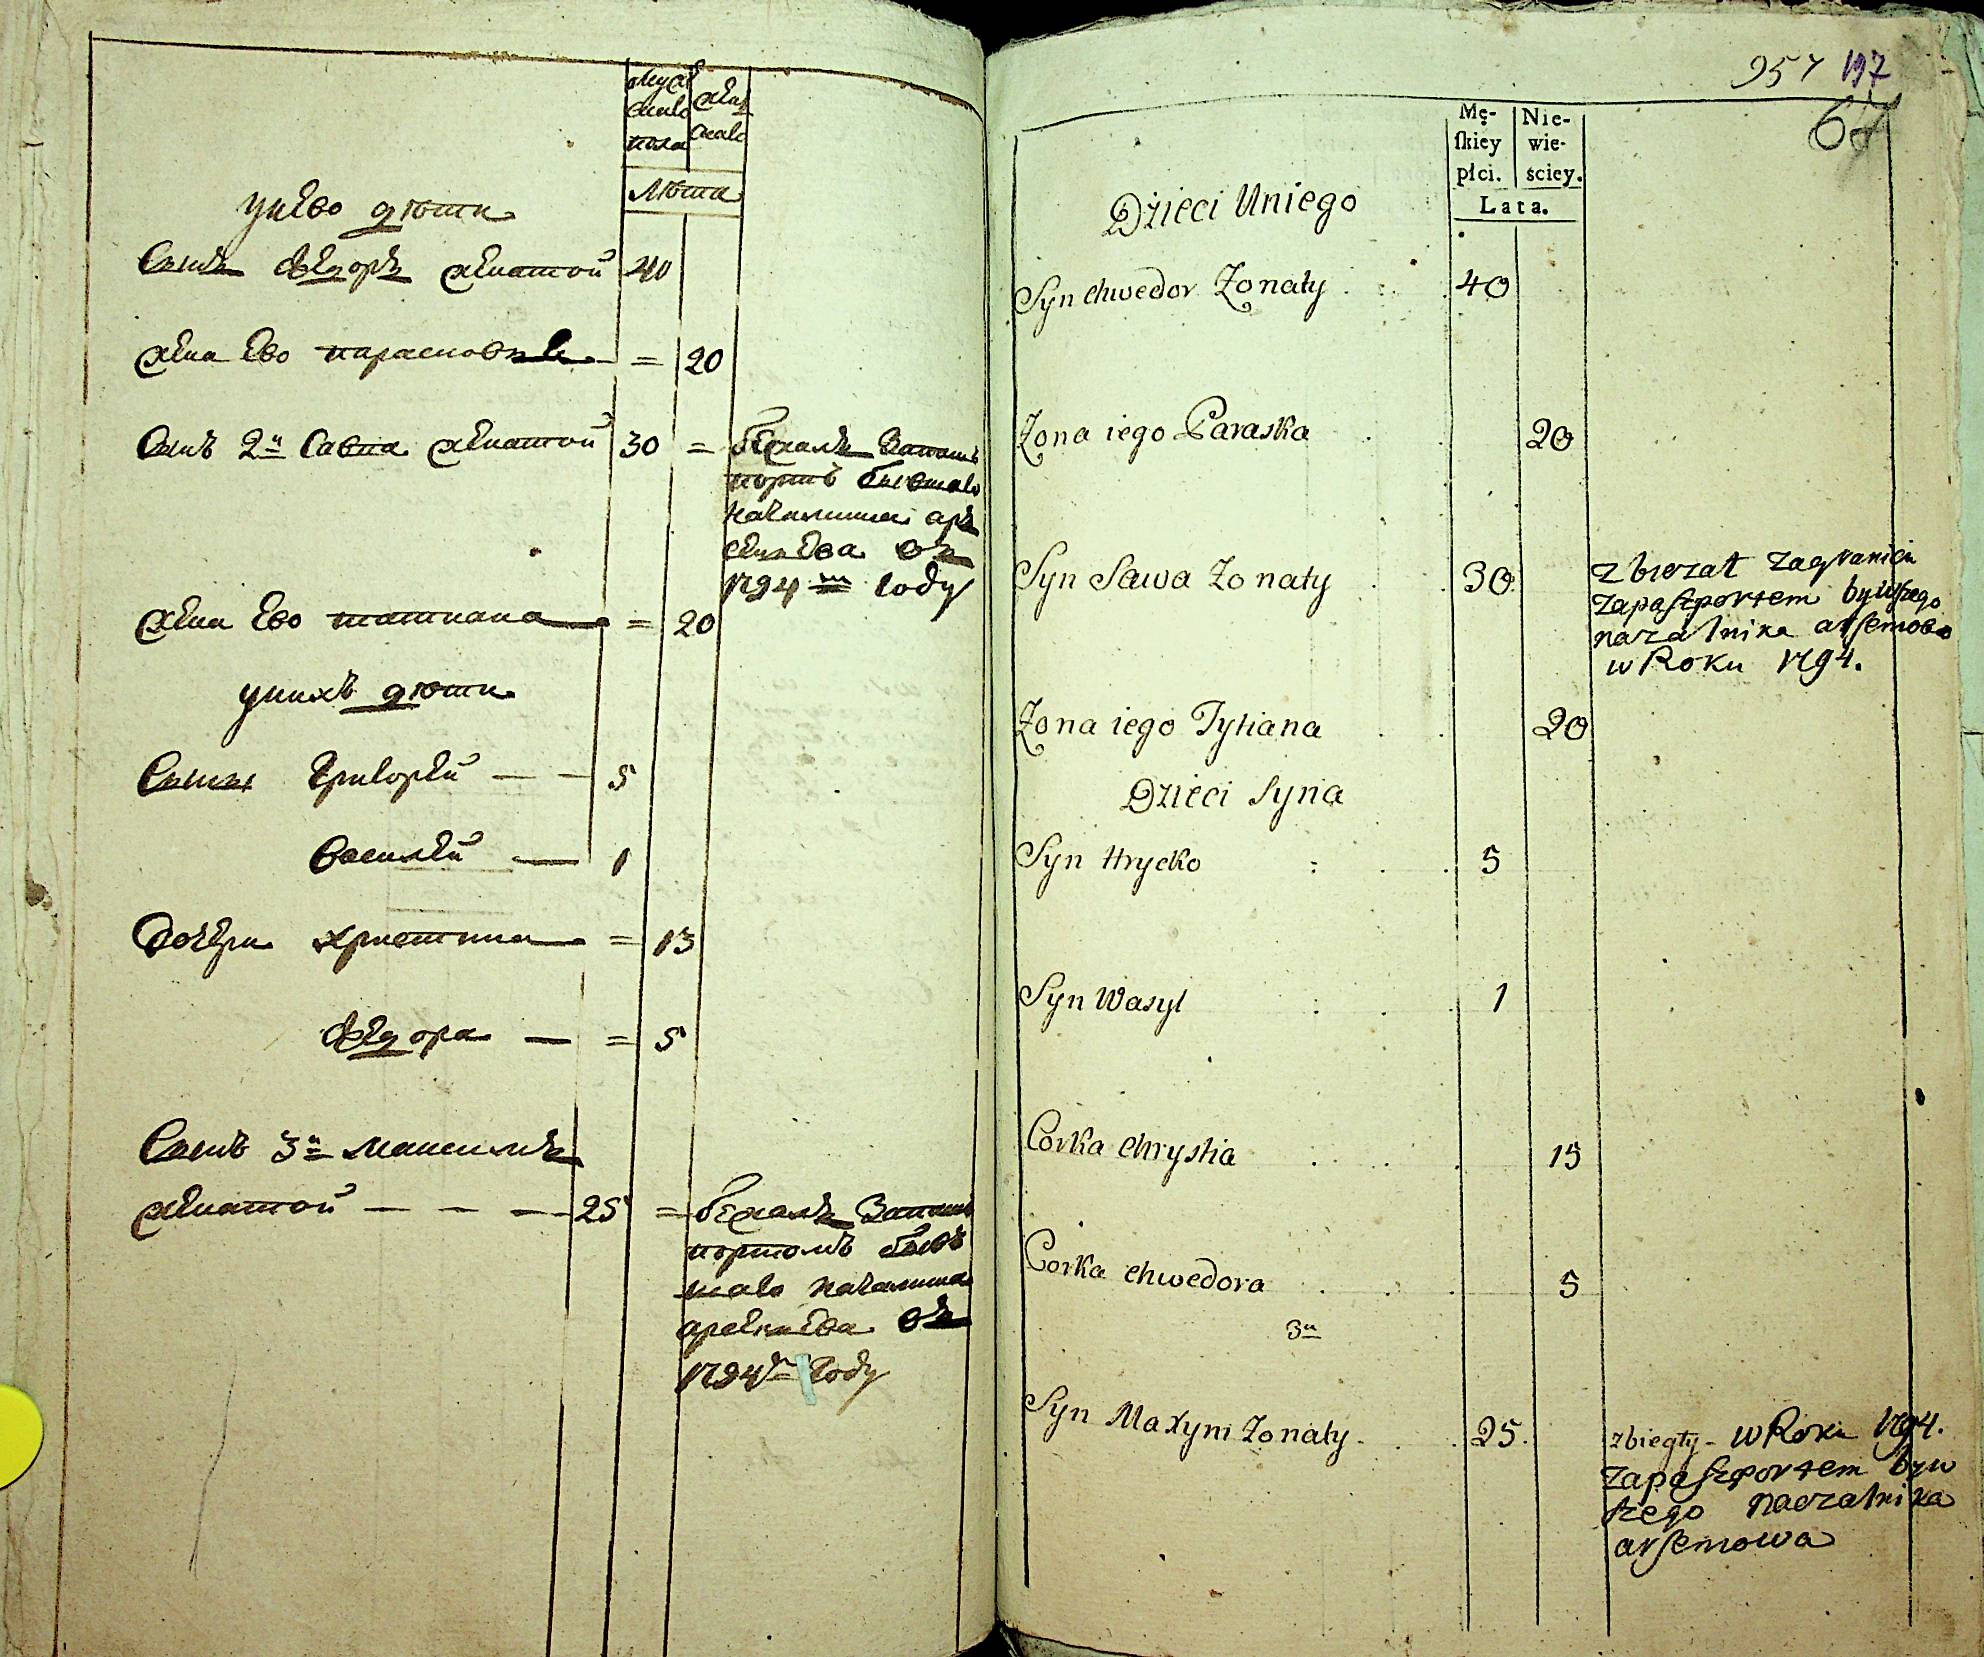 мужеска пола
женска
Лѣта
у нево дѣти
Сынъ Федоръ женатой 40
жена Ево парасковья = 20
Сынъ 2й Савва женатой 30 = бежалъ Запаш
портъ бывшаго
началника ар
сеньева въ
1794м году
жена Ево татиана = 20
у нихъ дѣти
Сыны Григорей — — 5
Василей — 1
Дочери христина = 13
Федора — = 5
Сынъ 3й максимъ
женатой — — — 25 = бежалъ Запаш
портомъ бывъ
шаго началника
арсеньева въ
1794м Году
957 197
67
Mę-
ſkiey
płci.
Nie-
wie-
ściey.
Lata.
Dzieci Uniego
Syn Chwedor Żonaty 40
Żona iego Paraska 20
Syn Sawa Żonaty 30
zbieżał zagranicu
zapaſzportem bywſzego
naczalnika arſeniowa
w Roku 1794.
Żona iego Tytiana 20
Dzieci Syna
Syn Hrycko 5
Syn Wasyl 1
Corka Chrystia 15
Corka Chwedora 5
3й
Syn Maxym Żonaty 25.
zbiegły w Roku 1794.
zapaſzportem byw
ſzego naczalnika
arſeniowa